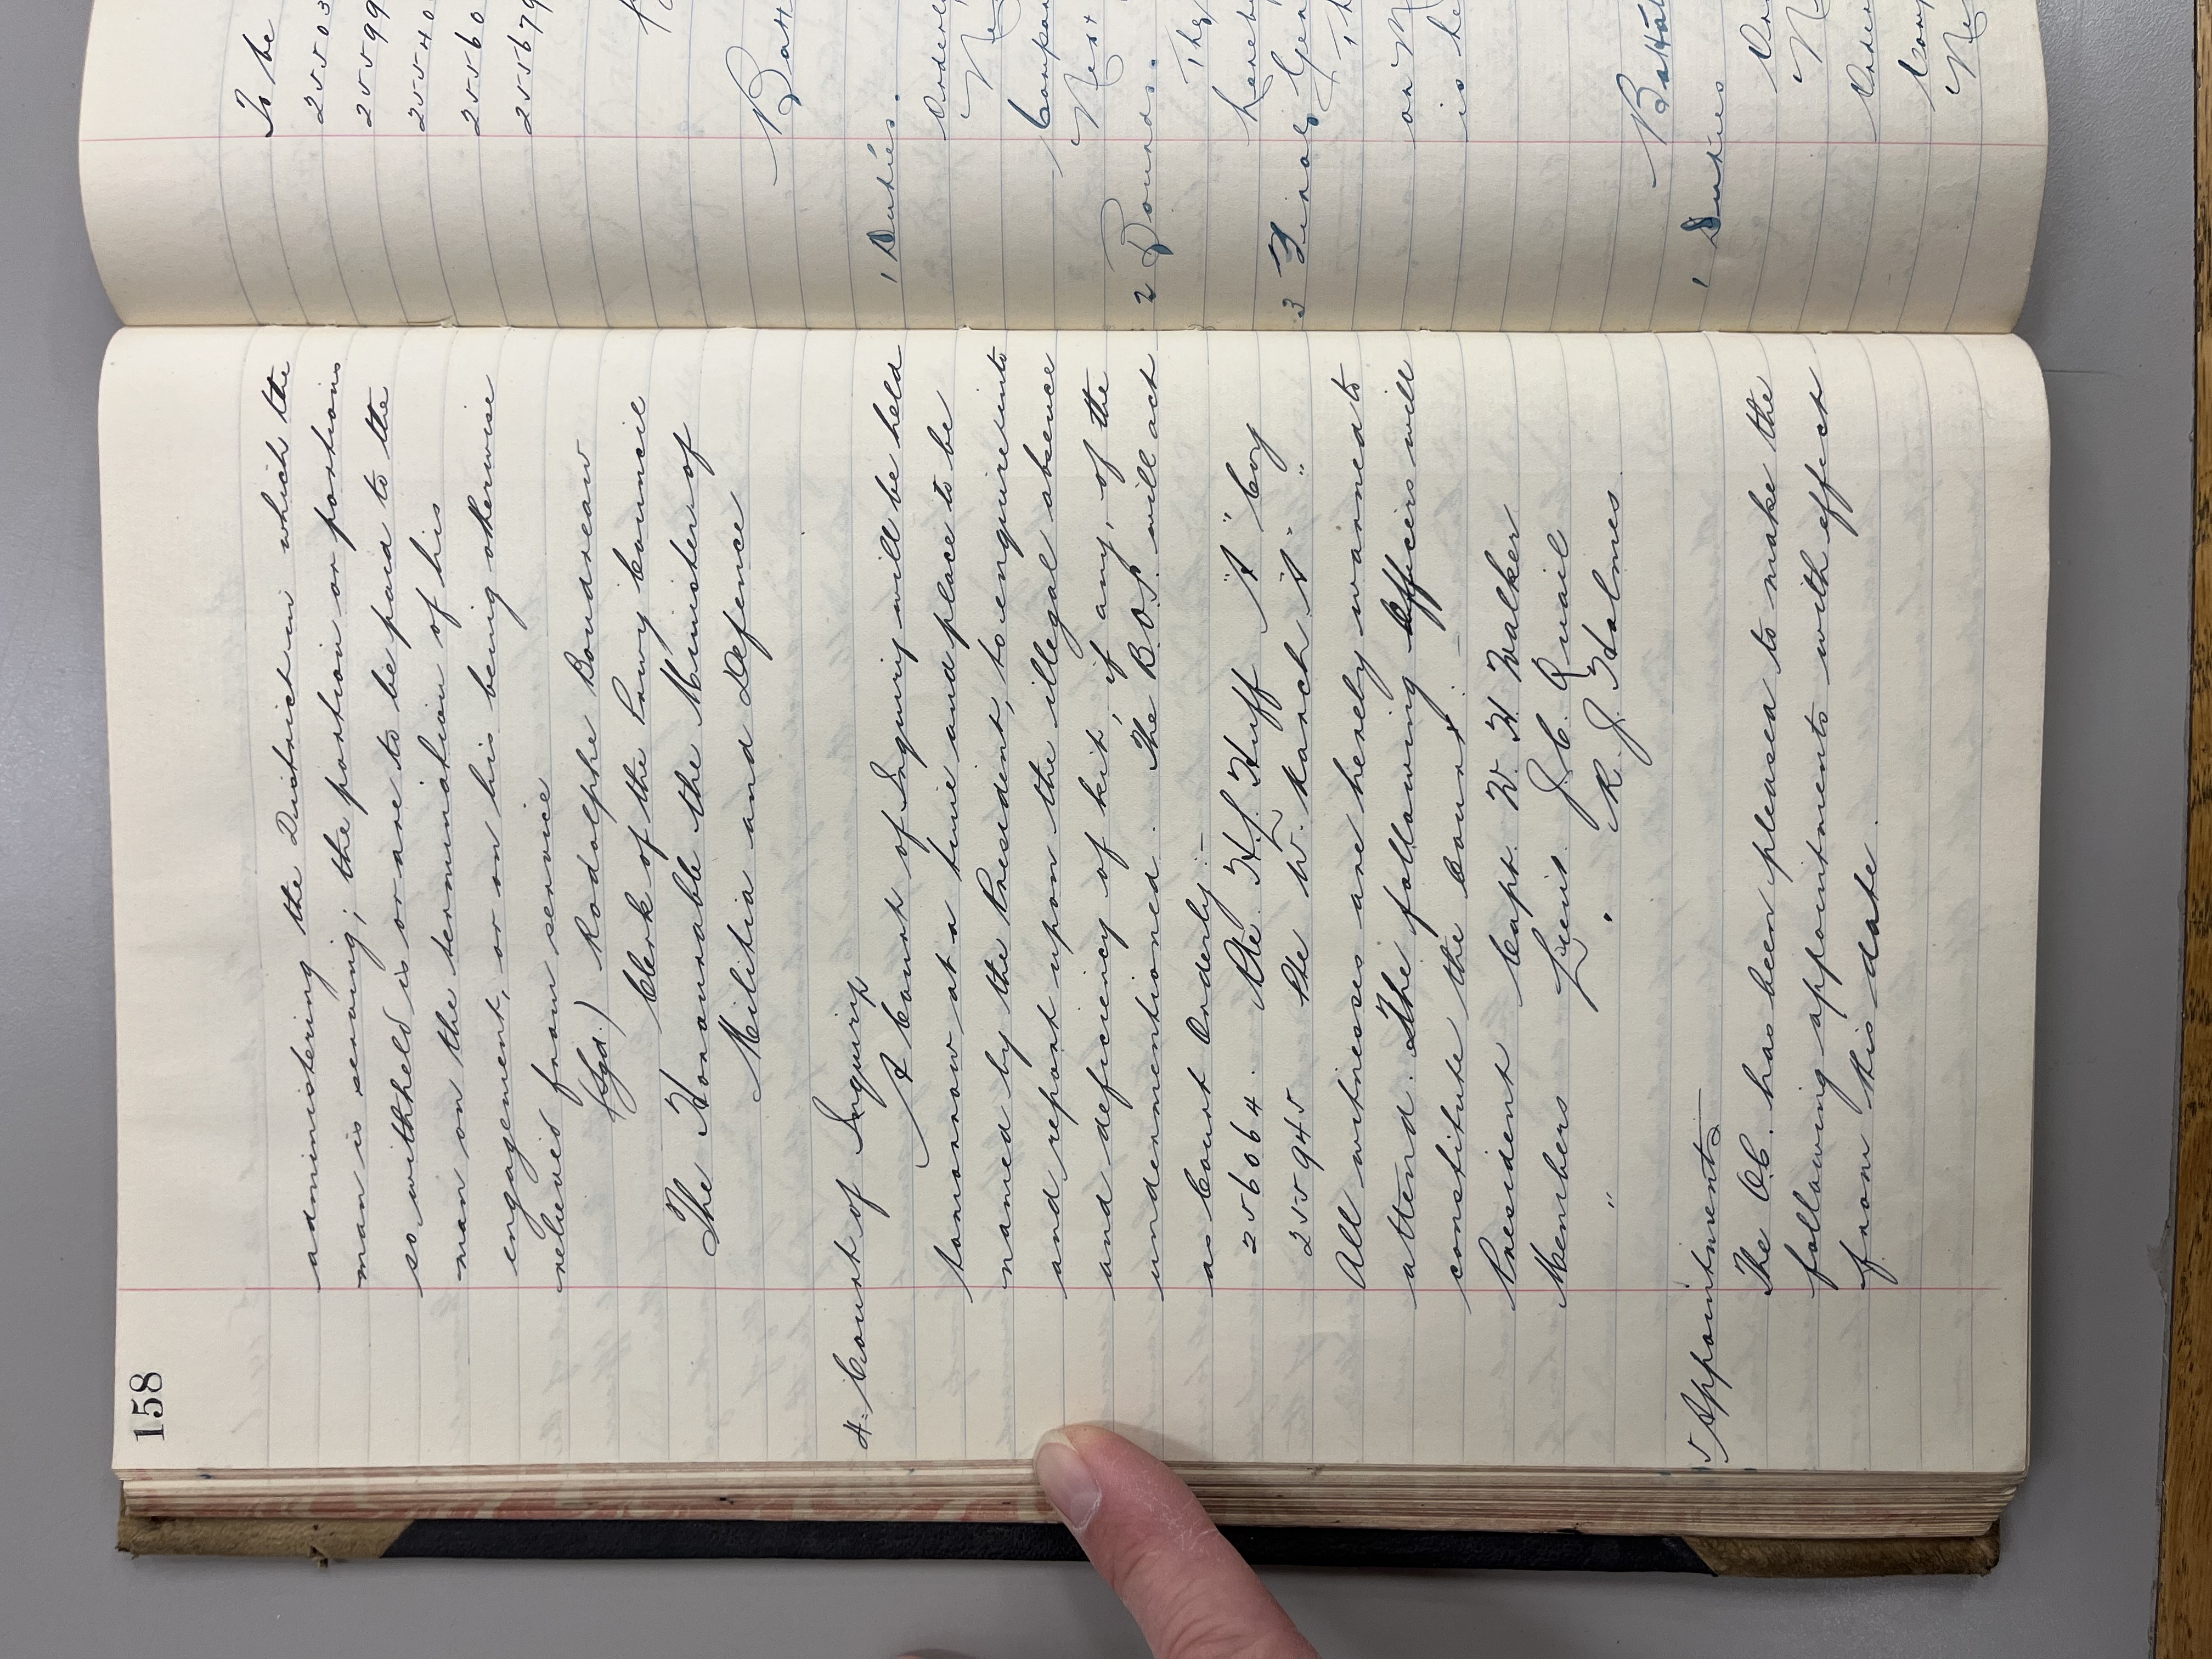 158
administering the District in which the
man is serving; the portion or portions
so withheld is or are to be paid to the
man on the termination of his
engagement, or on his being otherwise
relieved from service
(Sgd.) Rodolphe Boudreau
Clerk of the Privy Council
The Honourable the Minister of
Militia and Defence
4. Court of Inquiry
A Court of Inquiry will be held
tomorrow at a time and place to be
named by the President, to enquire into
and report upon the illegal absence
and deficiency of kit, if any, of the
undermentioned. The B.O.S. will act
as Court Orderly :-
256064. Pte. H.L. Huff "A" Coy
255945 Pte W. Karch "A" "
All witnesses are hereby warned to
attend. The following Officers will
constitute the Court :-
President Capt. W. H. Walker
Members Lieut. J.C. Quail
" " R. J. Holmes
5 Appointments
The O.C. has been pleased to make the
following appointments with effect
from this date.
To be
25503
25599
25540
25560
255679
Batt
1 Duties.
Orderly
Ne
Compan
Next
2 Rounds.
The
hereby
3 Lines, Gen
Th
on M
is he
Battal
1 Duties
Or
N
Order
Com
Ne